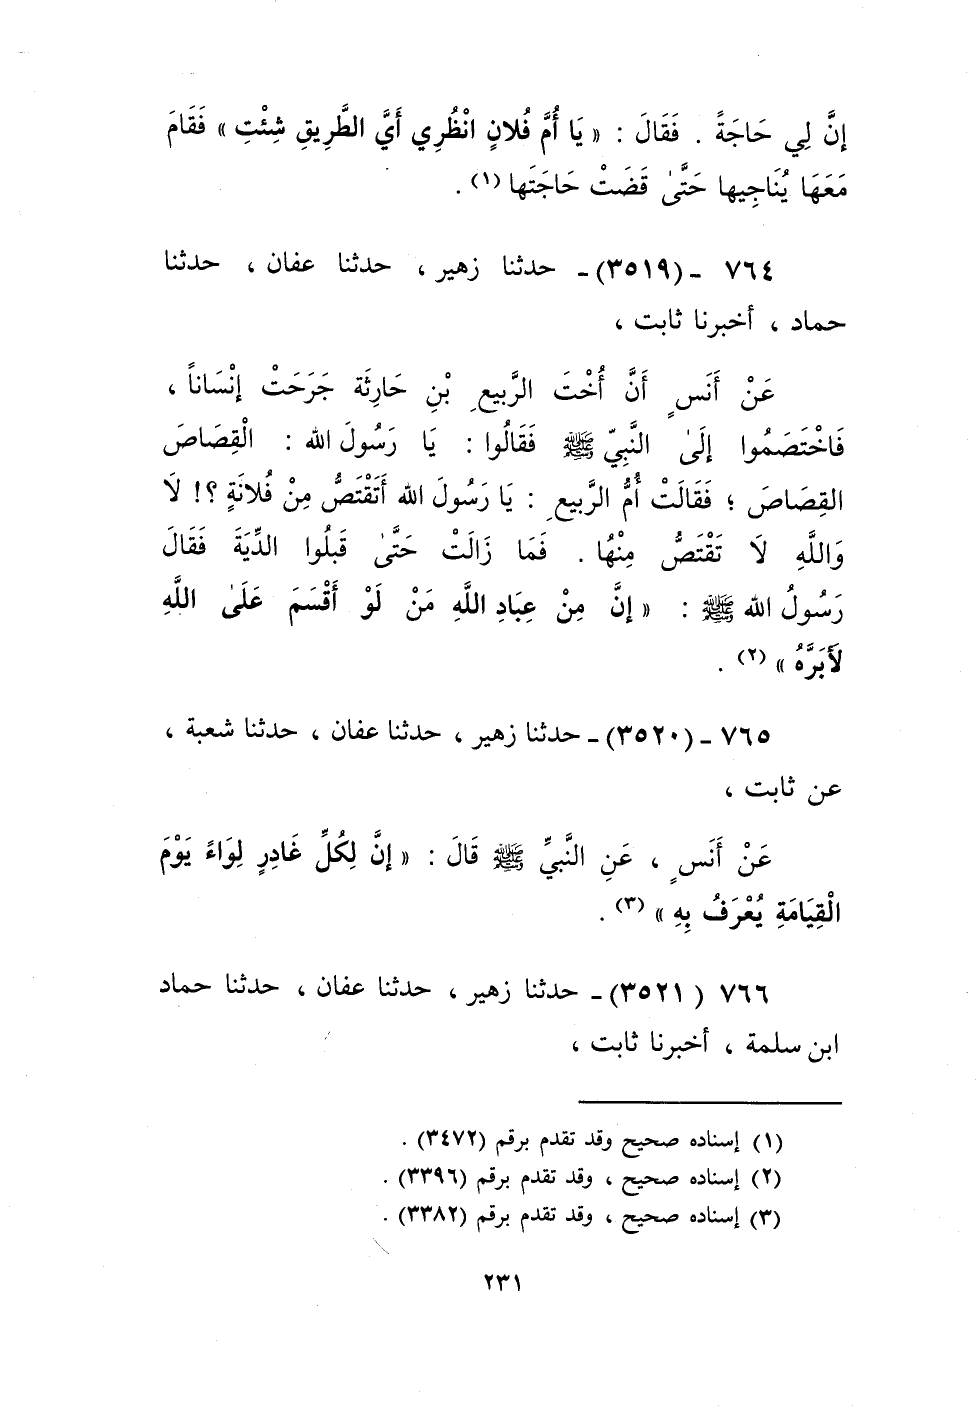 إنَّ لِي حَاجَةً . فَقَالَ : « يَا أُمَّ فُلانٍ انْظُرِي أَيَّ الطَّرِيقِ شِئْتِ » فَقَامَ
مَعَهَا يُنَاجِيها حَتَّىٰ قَضَتْ حَاجَتَها (١) .
٧٦٤ - (٣٥١٩) - حدثنا زهير ، حدثنا عفان ، حدثنا
حماد ، أخبرنا ثابت ،
عَنْ أَنَسٍ أَنَّ أُخْتَ الرَّبيعِ بْنِ حَارِثَة جَرَحَتْ إنْسَاناً ،
فَاخْتَصَمُوا إلَىٰ النَّبِيّ ﷺ فَقَالُوا : يَا رَسُولَ الله : الْقِصَاصَ
القِصَاصَ ؛ فَقَالَتْ أُمُّ الرَّبيعِ : يَا رَسُولَ الله أَتَقْتَصُّ مِنْ فُلانَةٍ ؟! لَا
وَاللَّهِ لَا تَقْتَصُّ مِنْهُا . فَمَا زَالَتْ حَتَّىٰ قَبلُوا الدِّيَةَ فَقَالَ
رَسُولُ الله ﷺ : « إنَّ مِنْ عِبَادِ اللَّهِ مَنْ لَوْ أَقْسَمَ عَلَىٰ اللَّهِ
لَأَبَرَّهُ » (٢) .
٧٦٥ - (٣٥٢٠) - حدثنا زهير ، حدثنا عفان ، حدثنا شعبة ،
عن ثابت ،
عَنْ أَنَسٍ ، عَنِ النَّبيِّ ﷺ قَالَ : « إنَّ لِكُلِّ غَادِرٍ لِوَاءً يَوْمَ
الْقِيَامَةِ يُعْرَفُ بِهِ » (٣) .
٧٦٦ (٣٥٢١) - حدثنا زهير ، حدثنا عفان ، حدثنا حماد
ابن سلمة ، أخبرنا ثابت ،
(١) إسناده صحيح وقد تقدم برقم (٣٤٧٢) .
(٢) إسناده صحيح ، وقد تقدم برقم (٣٣٩٦) .
(٣) إسناده صحيح ، وقد تقدم برقم (٣٣٨٢) .
٢٣١